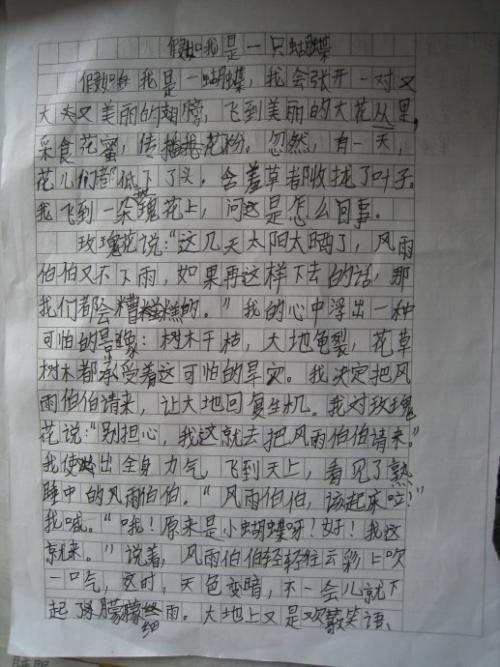 假如我是一只蝴蝶
假如我是一蝴蝶，我会张开一对又
大又美丽的翅膀，飞到美丽的大花丛里，
采食花蜜，传播花粉。忽然，有一天，
花儿们都低下了头，含羞草都收拢了叶子。
我飞到一朵玫瑰花上，问这是怎么回事。
玫瑰花说：“这几天太阳大晒了，风雨
伯伯又不下雨，如果再这样下去的话，那
我们都会糟糕的。”我的心中浮出一种
可怕的景象：树木干枯，大地龟裂，花草
树木都承受着这可怕的旱灾。我决定把风
雨伯伯请来，让大地回复生机。我对玫瑰
花说：“别担心，我这就去把风雨伯伯请来。”
我使出全身力气 飞到天上，看见了熟
睡中的风雨伯伯。“风雨伯伯，该起床啦！”
我喊。“哦！原来是小蝴蝶呀！好！我这
就来。”说着，风雨伯伯轻轻往云彩上吹
一口气，及时，天色变暗，不一会儿就下
起了朦朦细雨。大地上又是欢歌笑语、